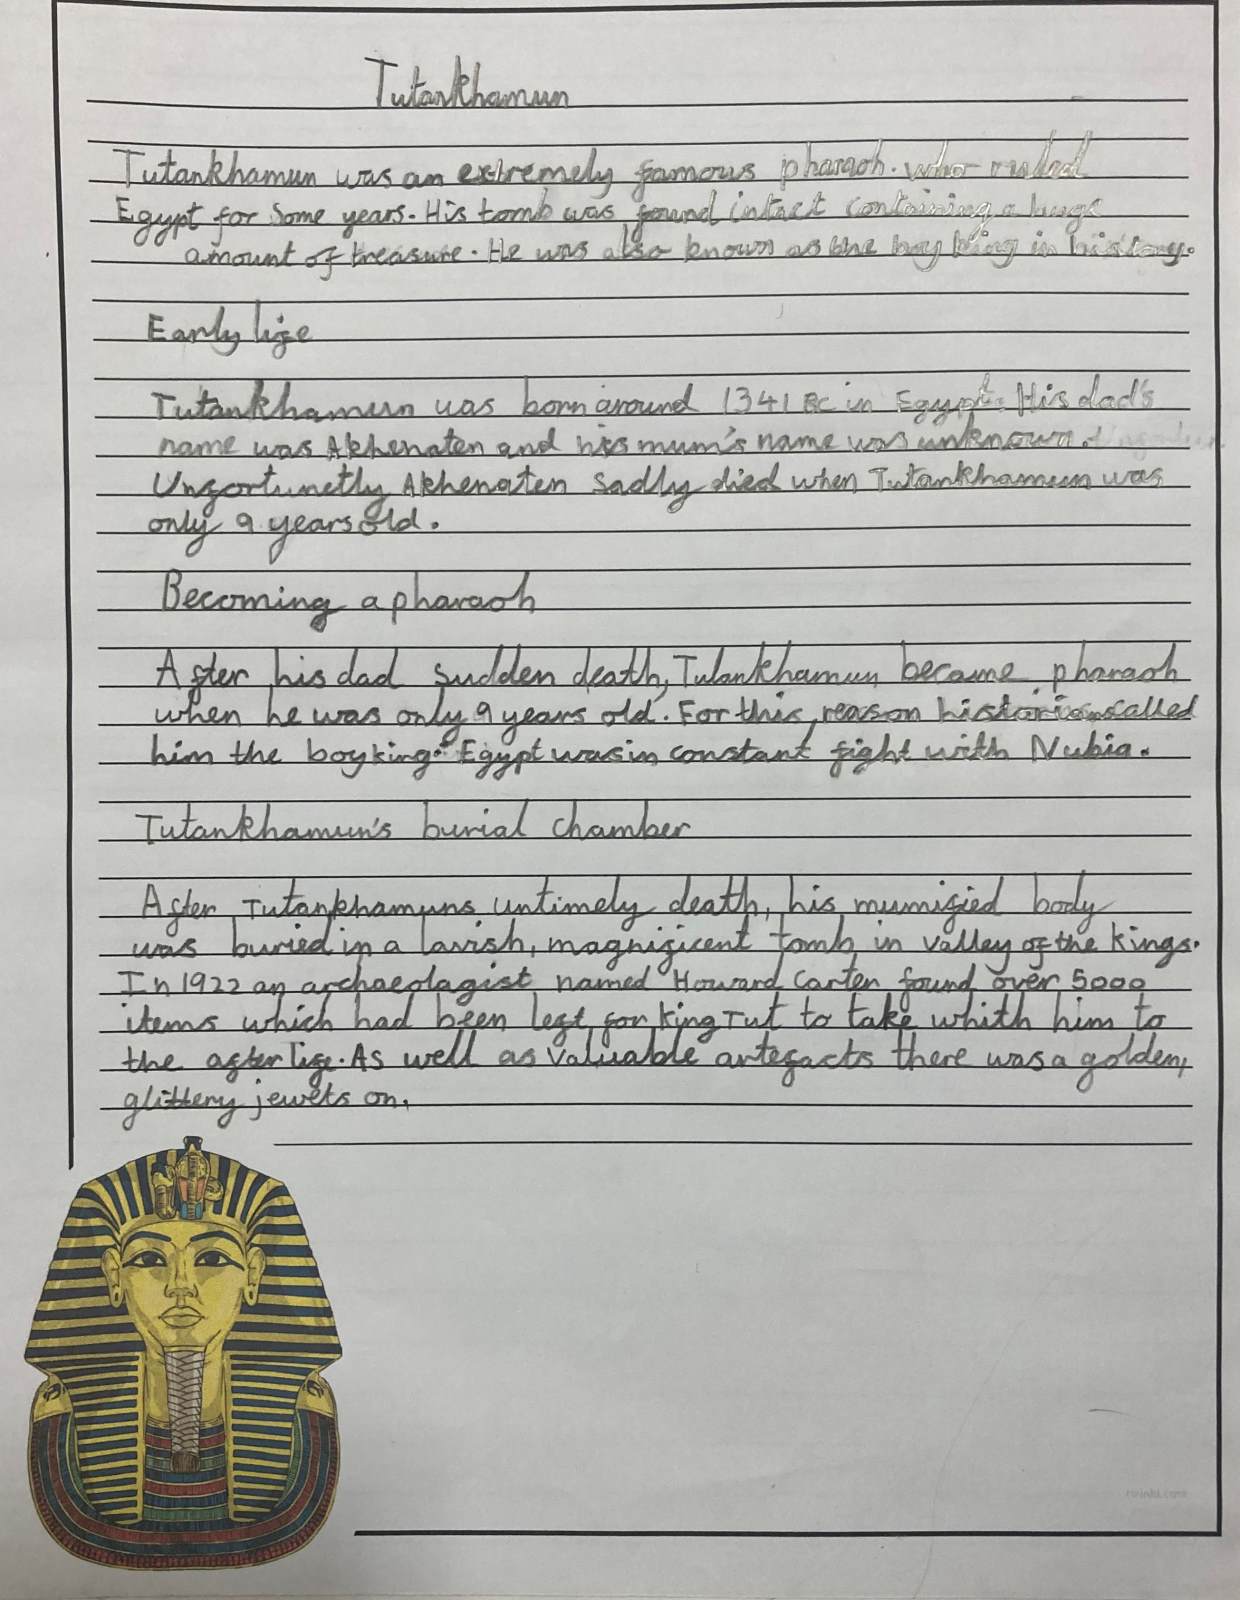 Tutankhamun
Tutankhamun was an extremely famous pharaoh. who ruled
Egypt for Some years. His tomb was found intact containing a huge
amount of treasure. He was also known as the boy king in history.
Early life
Tutankhamun was born around 1341 BC in Egypt. His dad's
name was Akhenaten and his mum's name was unknown.
Unfortunetly Akhenaten Sadly died when Tutankhamun was
only 9 years old.
Becoming a pharaoh
After his dad sudden death, Tutankhamun became pharaoh
when he was only 9 years old. For this reason historians called
him the boy king. Egypt was in constant fight with Nubia.
Tutankhamun's burial chamber
After Tutankhamuns untimely death, his mumified body
was buried in a lavish, magnificent tomb in valley of the Kings.
In 1922 an archaeolagist named Howard Carter found over 5000
items which had been left for King Tut to take whith him to
the after life. As well as valuable artefacts there was a golden,
glittery jewels on.